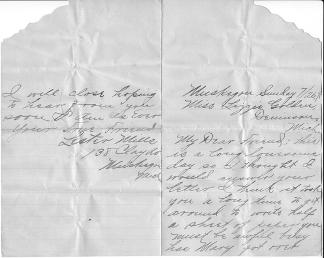 Muskegon Sunday 7/26/
Miss Lizzie
Mich
My Dear Friend; this
is a long lonesome
day so I thought I
would answer your
letter I think it took
you a long time to get
around to write half
a sheet of paper you
must be awful busy
has Mary got over
I will close hoping
to hear from you
soon
Your True Friend
Lester Mills
Muskegon
Mich